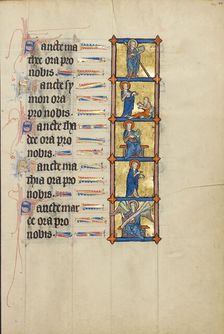 Sancte ma
thee ora pro
nobis.
Sancte sy
mon ora
pro nobis.
Sancte tha
dee ora pro
nobis.
Sancte ma
thia ora pro
nobis.
Sancte mar
ce ora pro
nobis.